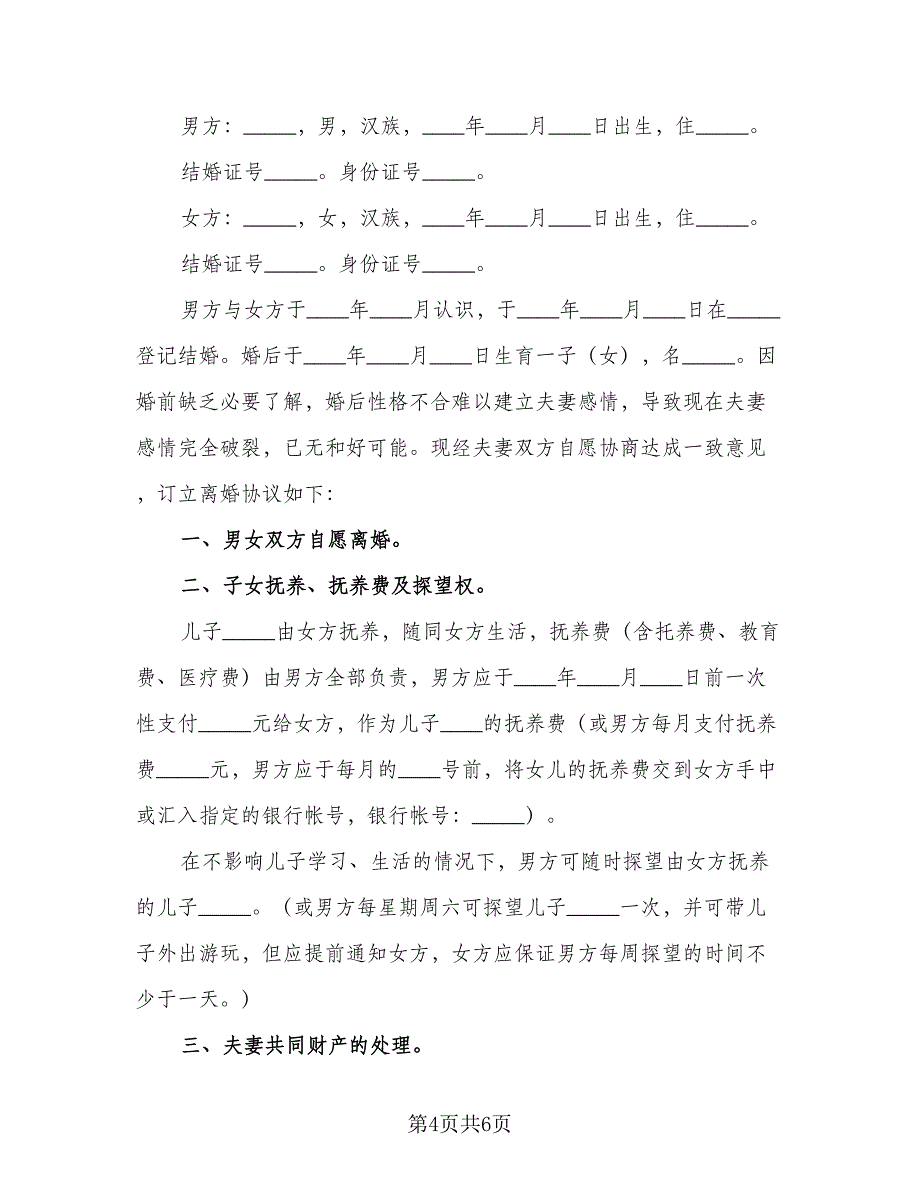 男方：_____，男，汉族，____年____月____日出生，住_____。
结婚证号_____。身份证号_____。
女方：_____，女，汉族，____年____月____日出生，住_____。
结婚证号_____。身份证号_____。
男方与女方于____年____月认识，于____年____月____日在_____
登记结婚。婚后于____年____月____日生育一子（女），名_____。因
婚前缺乏必要了解，婚后性格不合难以建立夫妻感情，导致现在夫妻
感情完全破裂，已无和好可能。现经夫妻双方自愿协商达成一致意见
，订立离婚协议如下：
一、男女双方自愿离婚。
二、子女抚养、抚养费及探望权。
儿子_____由女方抚养，随同女方生活，抚养费（含托养费、教育
费、医疗费）由男方全部负责，男方应于____年____月____日前一次
性支付_____元给女方，作为儿子____的抚养费（或男方每月支付抚养
费_____元，男方应于每月的____号前，将女儿的抚养费交到女方手中
或汇入指定的银行帐号，银行帐号：_____）。
在不影响儿子学习、生活的情况下，男方可随时探望由女方抚养
的儿子_____。（或男方每星期周六可探望儿子_____一次，并可带儿
子外出游玩，但应提前通知女方，女方应保证男方每周探望的时间不
少于一天。）
三、夫妻共同财产的处理。
第4页共6页